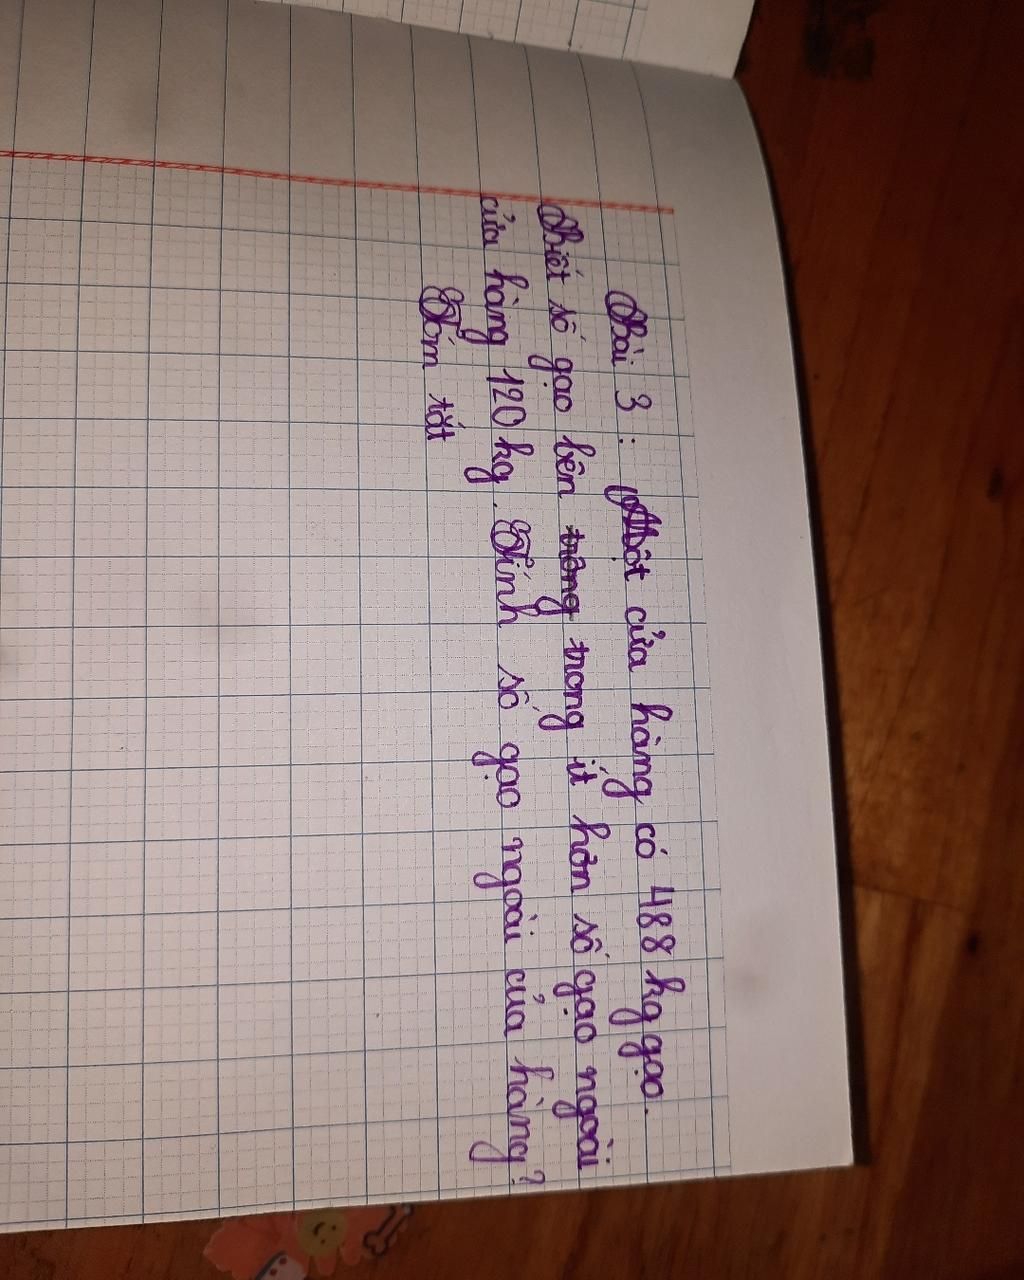 Bài 3: Một cửa hàng có 488 kg gạo.
Biết số gạo bên trong trong ít hơn số gạo ngoài
cửa hàng 120 kg. Tính số gạo ngoài cửa hàng?
Tóm tắt